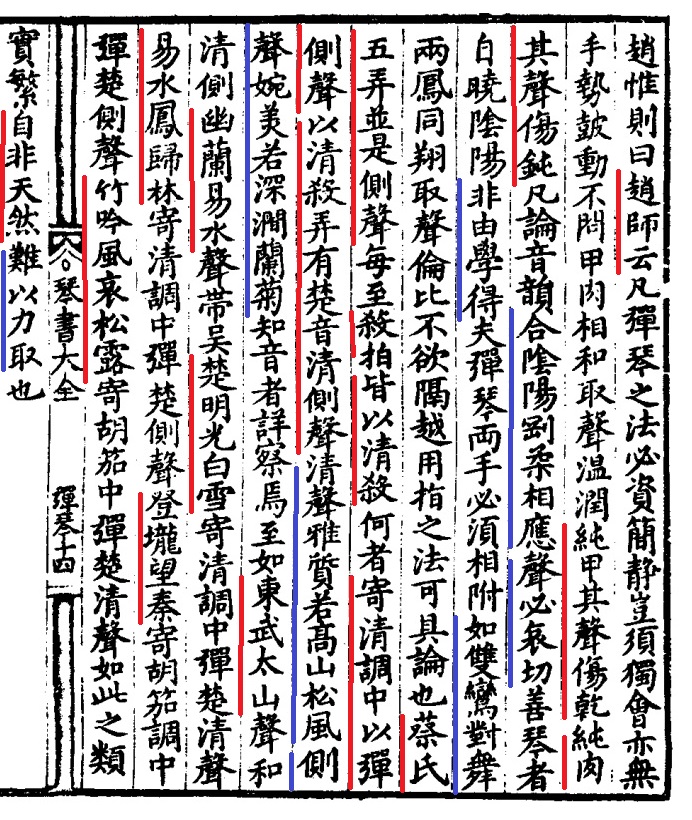 趙惟則曰趙師云凡彈琴之法必資簡静豈須獨會亦無
手勢皷動不問甲肉相和取聲温潤純甲其聲傷乾純肉
其聲傷鈍凡論音韻合陰陽剛柔相應聲必哀切善琴者
自曉陰陽非由學得夫彈琴両手必須相附如雙鸞對舞
兩鳳同翔取聲倫比不欲隔越用指之法可具論也蔡氏
五弄並是側聲每至殺拍皆以清殺何者寄清調中以彈
側聲以清殺弄有楚音清側聲清聲雅質若髙山松風側
聲婉美若深澗蘭菊知音者詳察焉至如東武太山聲和
清側幽蘭易水聲帶吴楚明光白雪寄清調中彈楚清聲
易水鳳歸林寄清調中彈楚側聲登壠望秦寄胡笳調中
彈楚側聲竹吟風哀松露寄胡笳中彈楚清聲如此之類
琴書大全
彈琴十四
實繁自非天然難以力取也